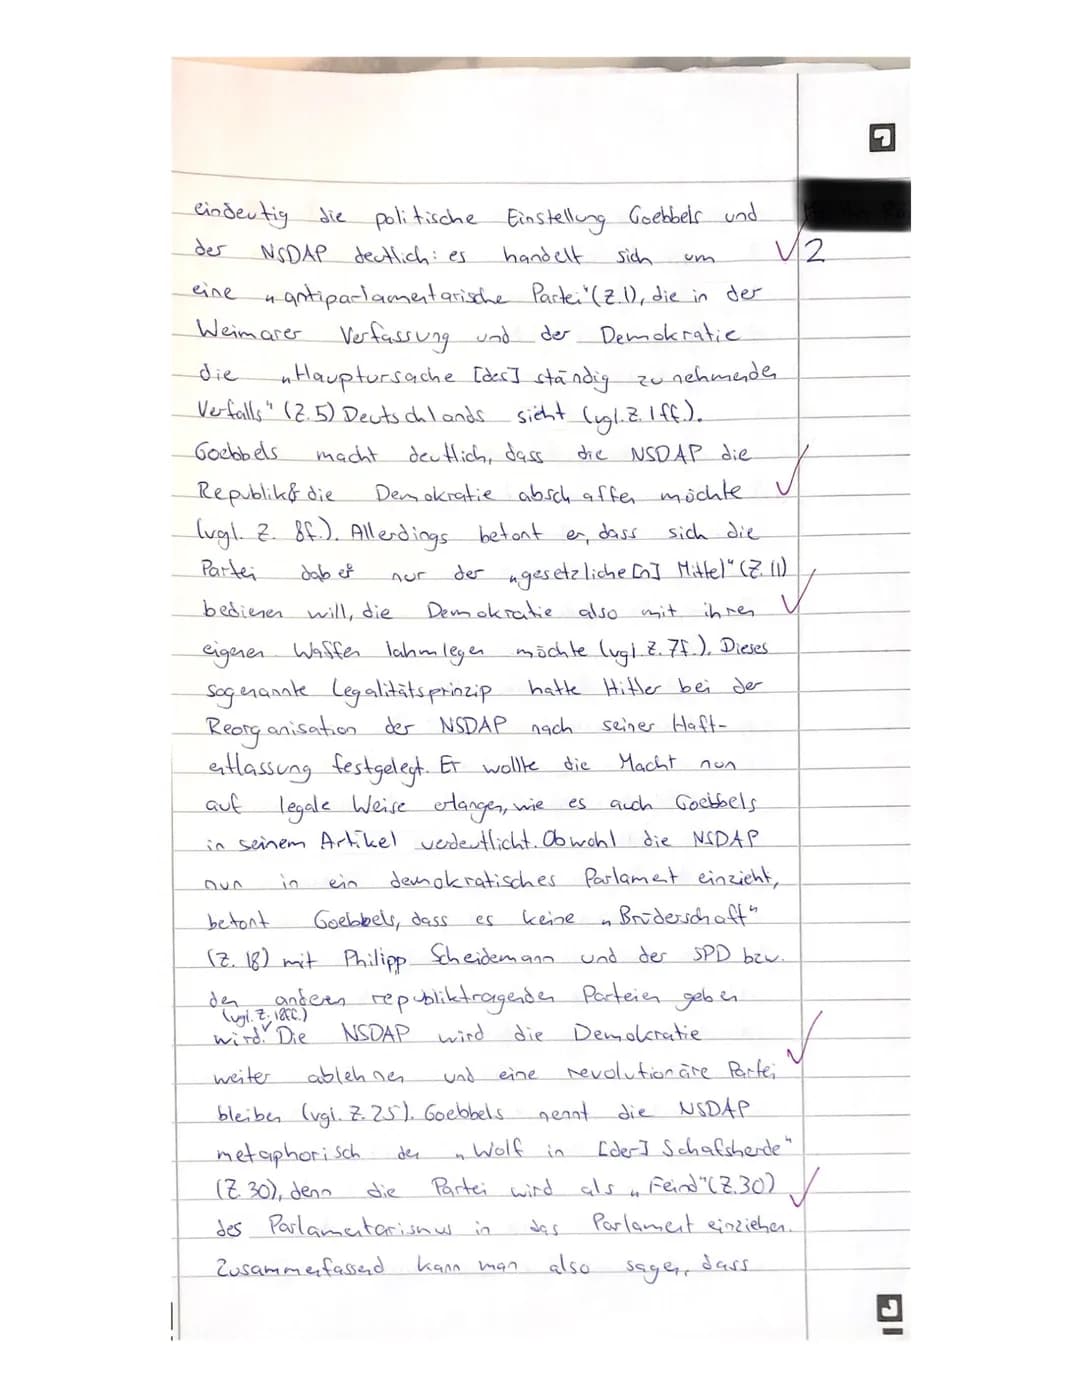 eindeutig die politische Einstellung Goebbels und
der NSDAP deutlich: es handelt sich um
√2
eine „antiparlamentarische Partei" (Z.1), die in der
Weimarer Verfassung und der Demokratie
die „Hauptursache [des] ständig zunehmenden
Verfalls" (Z.5) Deutschlands sieht (vgl. Z. 1ff.).
Goebbels macht deutlich, dass die NSDAP die
Republik & die Demokratie abschaffen möchte
(vgl. Z. 8f.). Allerdings betont er, dass sich die
Partei dabei nur der „gesetzliche[n] Mittel" (Z. 11)
bedienen will, die Demokratie also mit ihren
eigenen Waffen lahmlegen möchte (vgl. Z. 7f.). Dieses
sogenannte Legalitätsprinzip hatte Hitler bei der
Reorganisation der NSDAP nach seiner Haft-
entlassung festgelegt. Er wollte die Macht nun
auf legale Weise erlangen, wie es auch Goebbels
in seinem Artikel verdeutlicht. Obwohl die NSDAP
nun in ein demokratisches Parlament einzieht,
betont Goebbels, dass es keine „Brüderschaft"
(Z. 18) mit Philipp Scheidemann und der SPD bzw.
den anderen republiktragenden Parteien geben
(vgl. Z. 18ff.)
wird. Die NSDAP wird die Demokratie
weiter ablehnen und eine revolutionäre Partei
bleiben (vgl. Z. 25). Goebbels nennt die NSDAP
metaphorisch den „Wolf in [der] Schafsherde"
(Z. 30), denn die Partei wird als „Feind" (Z. 30)
des Parlamentarismus in das Parlament einziehen.
Zusammenfassend kann man also sagen, dass